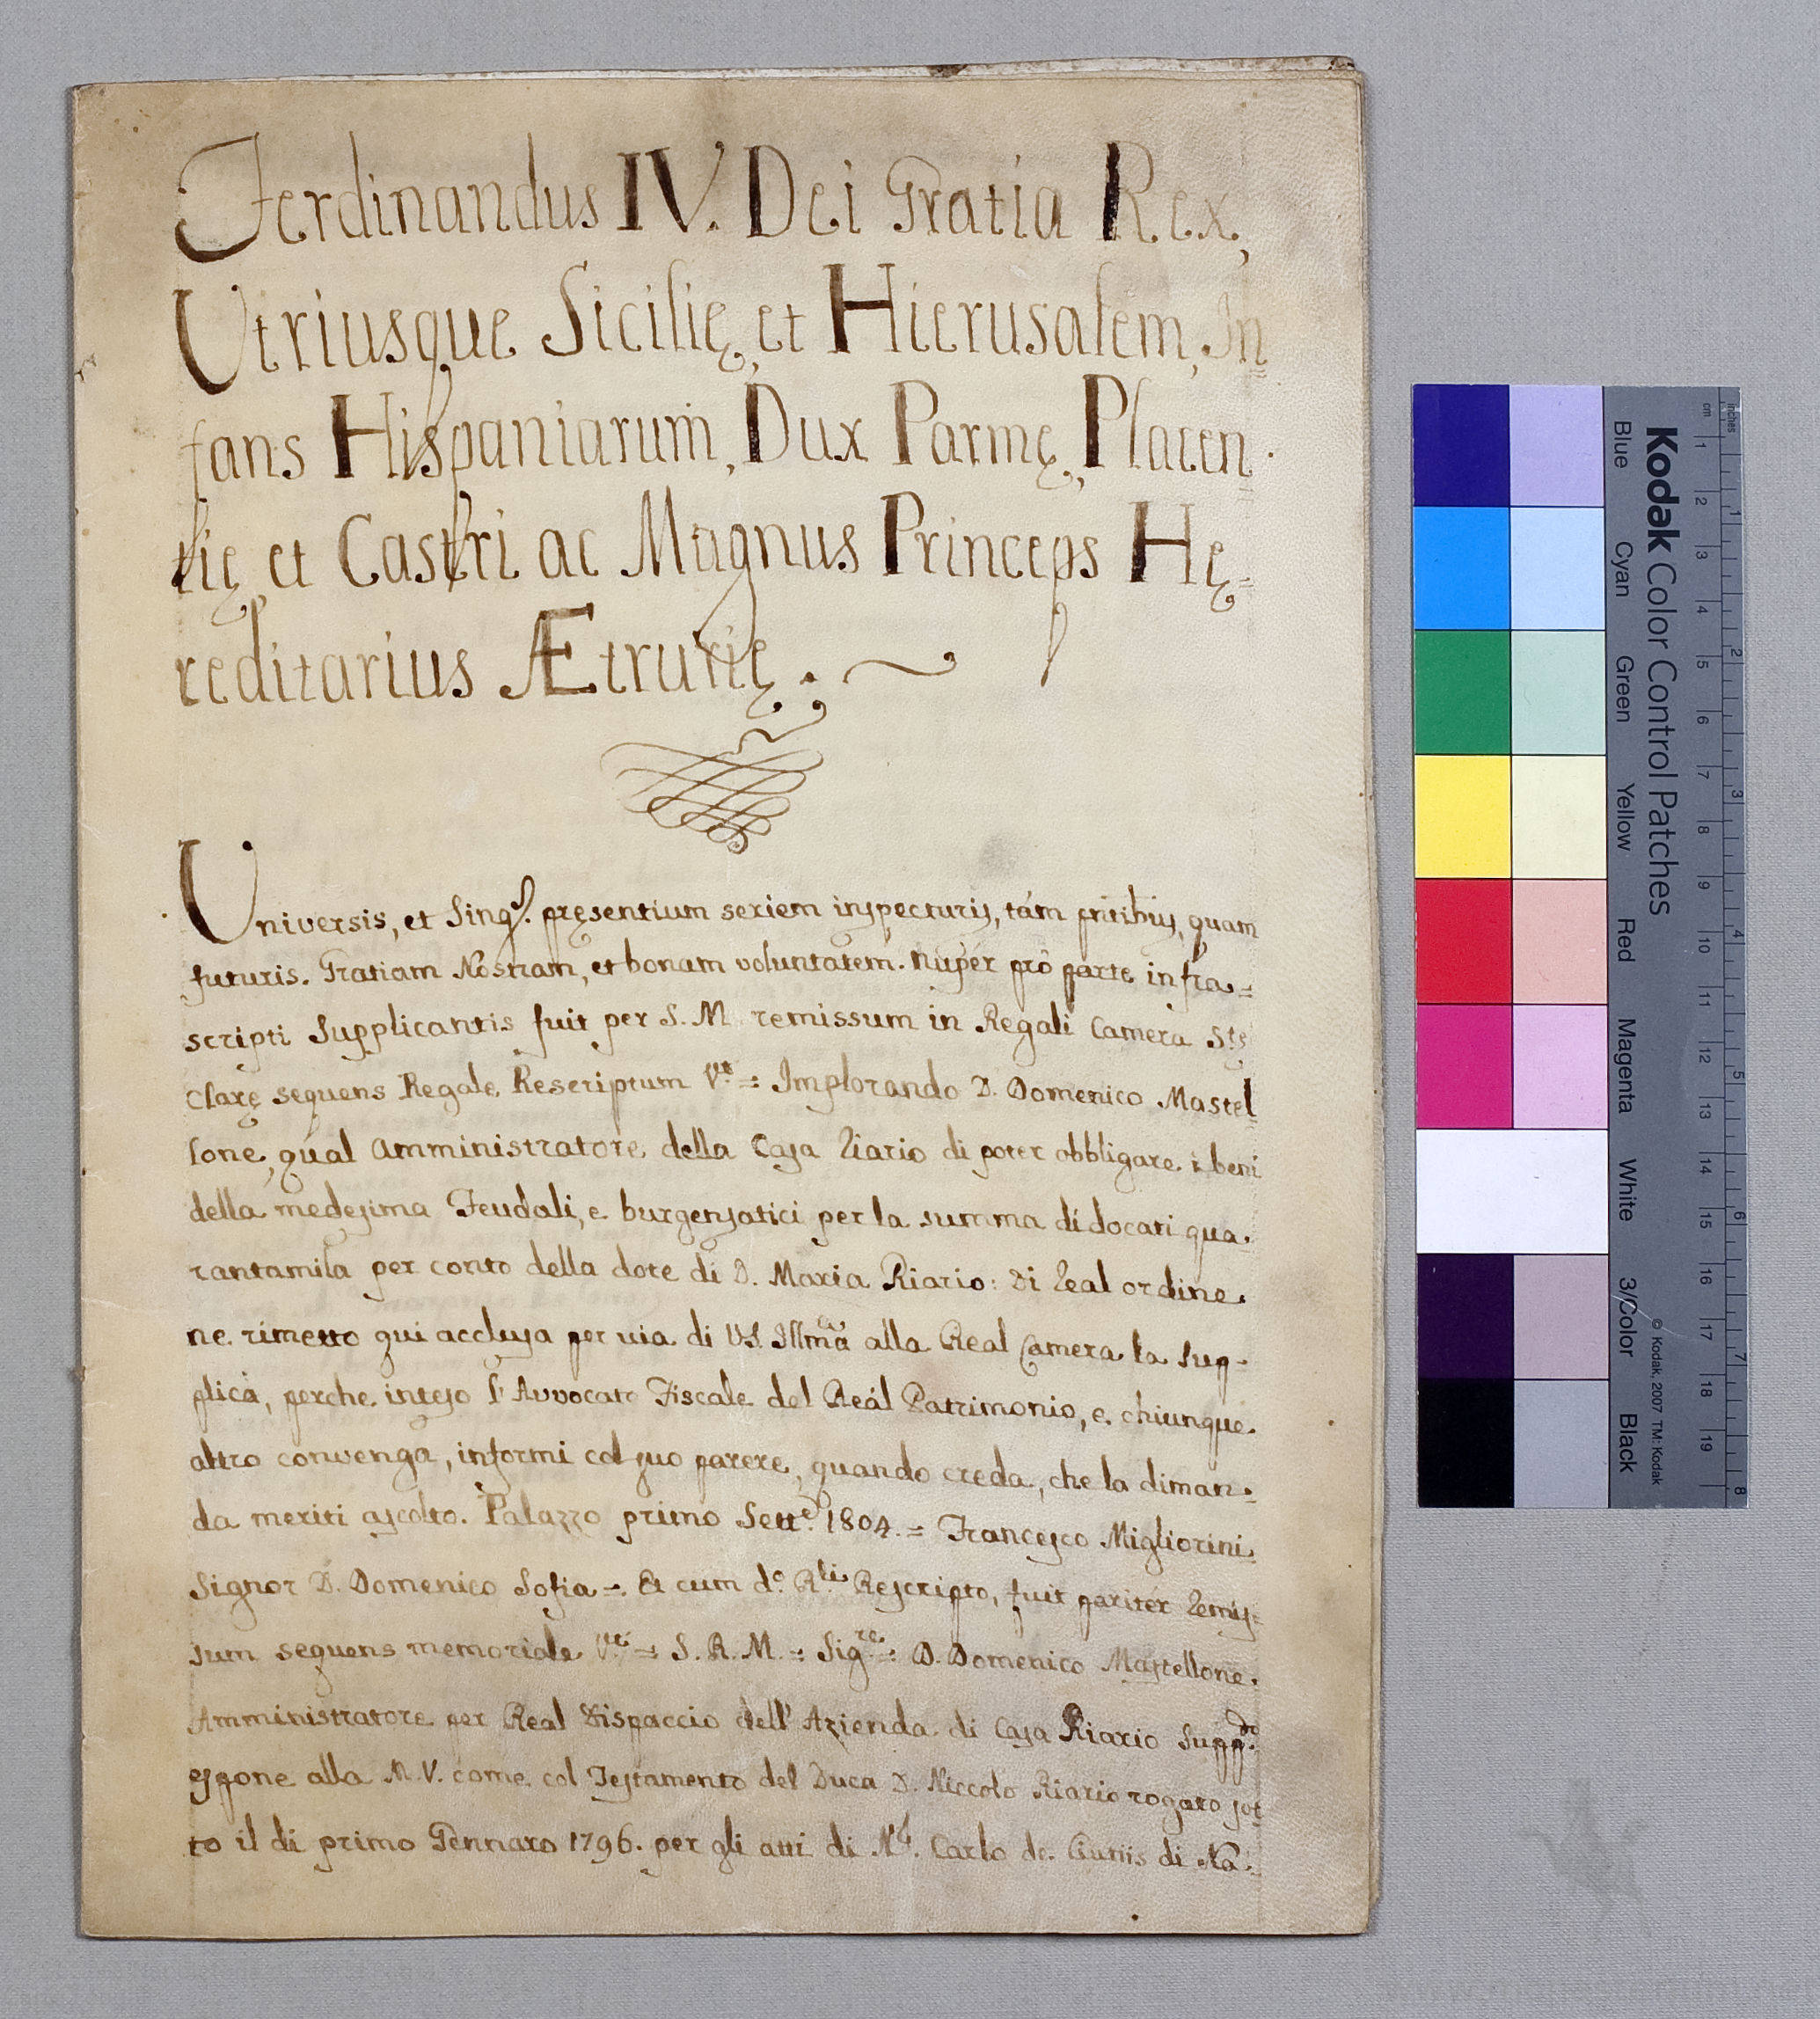 Ferdinandus IV. Dei Gratia Rex,
Utriusque Sicilię, et Hierusalem, In=
fans Hispaniarum, Dux Parmę, Placen
tię, et Castri ac Magnus Princeps Hę=
reditarius Ætrurię.
Universis, et Sing.s pręsentium seriem inspecturis, tám pntibus, quam
futuris. Gratiam Nostram, et bonam voluntatem. Nupér prò parte infra=
scripti Supplicantis fuit per S. M. remissum in Regali Camera S.te
Clarę sequens Regale Rescriptum V.t = Implorando D. Domenico Mastel
lone, qúal Amministratore della Casa Riario di poter obbligare i beni
della medesima Feudali, e burgensatici per la summa di docati qua.
rantamila per conto della dote di D. Maria Riario: Di Real ordine
ne rimetto qui acclusa per via di VS. Illma alla Real Camera la sup-
plica, perche inteso l'Avvocato Fiscale del Reál Patrimonio, e chiunque
altro convenga, informi col suo parere, quando creda, che la diman=
da meriti ascolto. Palazzo primo Sett.e 1804. = Francesco Migliorini
Signor D. Domenico Sofia =. Et cum d.o R.li Rescripto, fuit paritér remis=
sum sequens memoriale V.t = S. R. M. = Sig.re = D. Domenico Mastellone
Amministratore per Real Dispaccio dell'Azienda di Casa Riario supp.do
espone alla M. V. come col Testamento del Duca D. Niccolo Riario rogato sot
to il di primo Gennaro 1796. per gli atti di N.r Carlo de di Na=
Kodak Color Control Patches
Blue Cyan Green Yellow Red Magenta White 3/Color Black
© Kodak, 2007 TM: Kodak
inches 1 2 3 4 5 6 7 8
cm 1 2 3 4 5 6 7 8 9 10 11 12 13 14 15 16 17 18 19